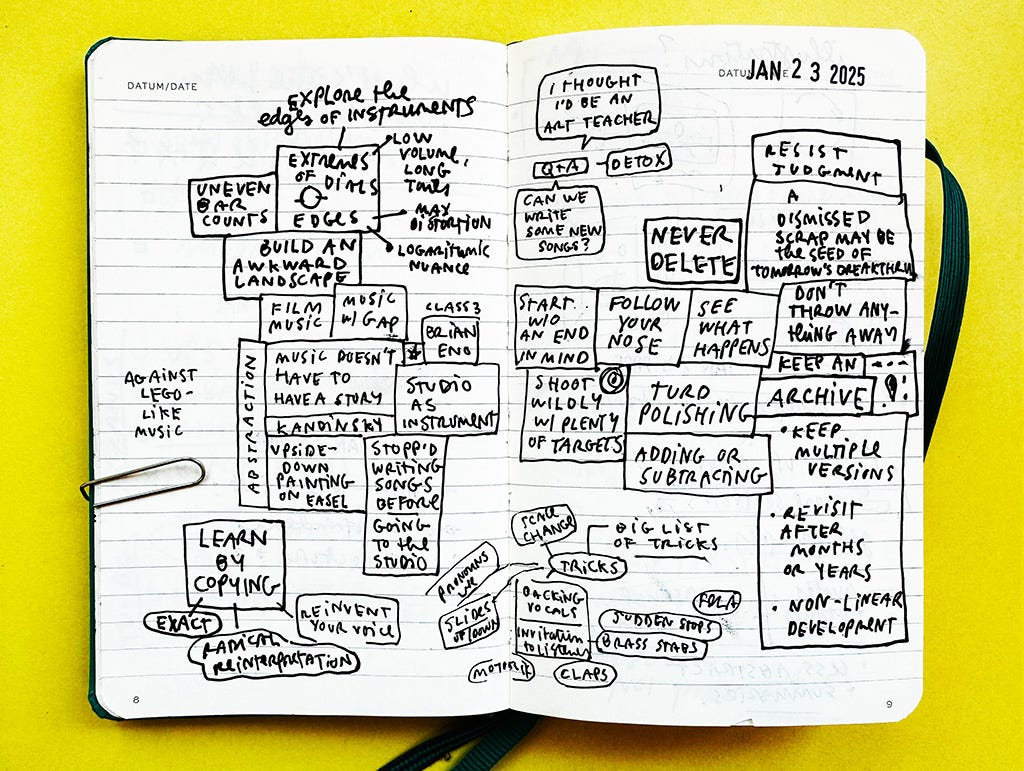 DATUM/DATE
EXPLORE the
edges of INSTRUMENTS
EXTREMES
OF DIALS
EDGES
LOW
VOLUME,
LONG
TAILS
MAX
DISTORTION
LOGARITMIC
NUANCE
UNEVEN
BAR
COUNTS
BUILD AN
AWKWARD
LANDSCAPE
FILM
MUSIC
MUSIC
W/ GAP
CLASS 3
BRIAN
ENO
*
ABSTRACTION
MUSIC DOESN'T
HAVE TO
HAVE A STORY
KANDINSKY
UPSIDE-
DOWN
PAINTING
ON EASEL
STUDIO
AS
INSTRUMENT
STOPP'D
WRITING
SONGS
BEFORE
GOING
TO the
STUDIO
AGAINST
LEGO-
LIKE
MUSIC
LEARN
BY
COPYING
EXACT
RADICAL
REINTERPRETATION
REINVENT
YOUR VOICE
8
JAN 23 2025
I THOUGHT
I'D BE AN
ART TEACHER
Q+A
DETOX
CAN WE
WRITE
SOME NEW
SONGS?
RESIST
JUDGMENT
A
DISMISSED
SCRAP MAY BE
the SEED OF
TOMORROW'S BREAKTHRU
NEVER
DELETE
START
W/O
AN END
IN MIND
FOLLOW
YOUR
NOSE
SEE
WHAT
HAPPENS
DON'T
THROW ANY-
thING AWAY
KEEP AN
ARCHIVE
!
SHOOT
WILDLY
W/ PLENTY
OF TARGETS
TURD
POLISHING
ADDING OR
SUBTRACTING
• KEEP
MULTIPLE
VERSIONS
• REVISIT
AFTER
MONTHS
OR YEARS
• NON-LINEAR
DEVELOPMENT
SCALE
CHANGE
BIG LIST
OF TRICKS
TRICKS
PRONOUNS
WE
SLIDES
UP/DOWN
BACKING
VOCALS
INVITATION
TO LISTENER
FOLA
SUDDEN STOPS
BRASS STABS
CLAPS
9